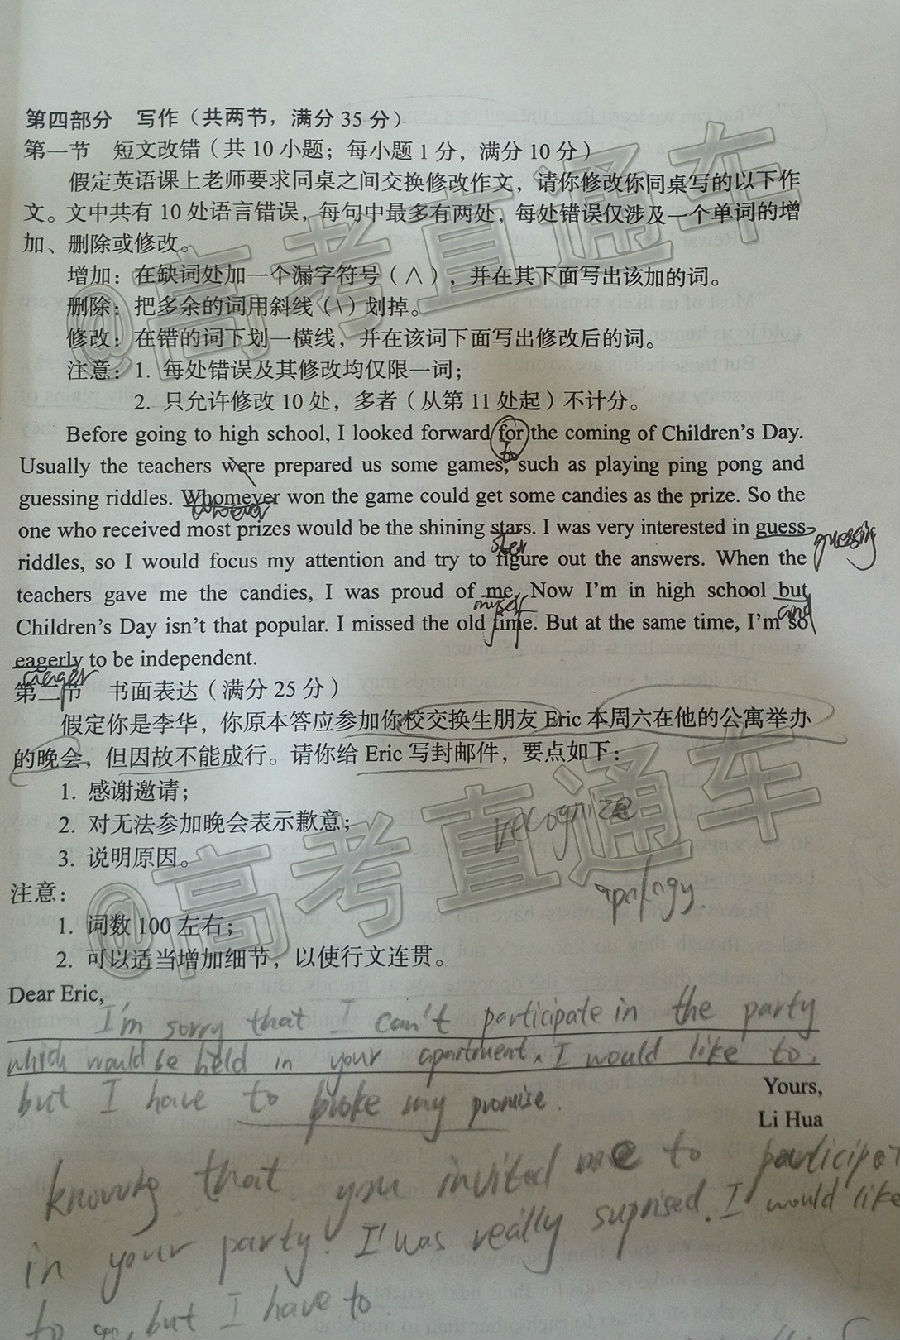 第四部分 写作（共两节，满分35分）
第一节 短文改错（共10小题；每小题1分，满分10分）
假定英语课上老师要求同桌之间交换修改作文，请你修改你同桌写的以下作
文。文中共有10处语言错误，每句中最多有两处，每处错误仅涉及一个单词的增
加、删除或修改。
增加：在缺词处加一个漏字符号（∧），并在其下面写出该加的词。
删除：把多余的词用斜线（\）划掉。
修改：在错的词下划一横线，并在该词下面写出修改后的词。
注意：1. 每处错误及其修改均仅限一词；
2. 只允许修改10处，多者（从第11处起）不计分。
Before going to high school, I looked forward for the coming of Children's Day.
to
Usually the teachers were prepared us some games, such as playing ping pong and
guessing riddles. Whomever won the game could get some candies as the prize. So the
whoever
one who received most prizes would be the shining stars. I was very interested in guess
star
guessing
riddles, so I would focus my attention and try to figure out the answers. When the
teachers gave me the candies, I was proud of me. Now I'm in high school but
myself
and
Children's Day isn't that popular. I missed the old time. But at the same time, I'm so
eagerly to be independent.
eager
第二节 书面表达（满分25分）
假定你是李华，你原本答应参加你校交换生朋友Eric本周六在他的公寓举办
的晚会，但因故不能成行。请你给Eric写封邮件，要点如下：
1. 感谢邀请；
2. 对无法参加晚会表示歉意；
recognize
3. 说明原因。
apology.
注意：
1. 词数100左右；
2. 可以适当增加细节，以使行文连贯。
Dear Eric,
I'm sorry that I can't participate in the party
which would be held in your apartment. I would like to,
but I have to broke my promise.
Yours,
Li Hua
knowing that you invited me to participat
in your party. I was really suprised. I would like
to go, but I have to
@高考直通车
@高考直通车